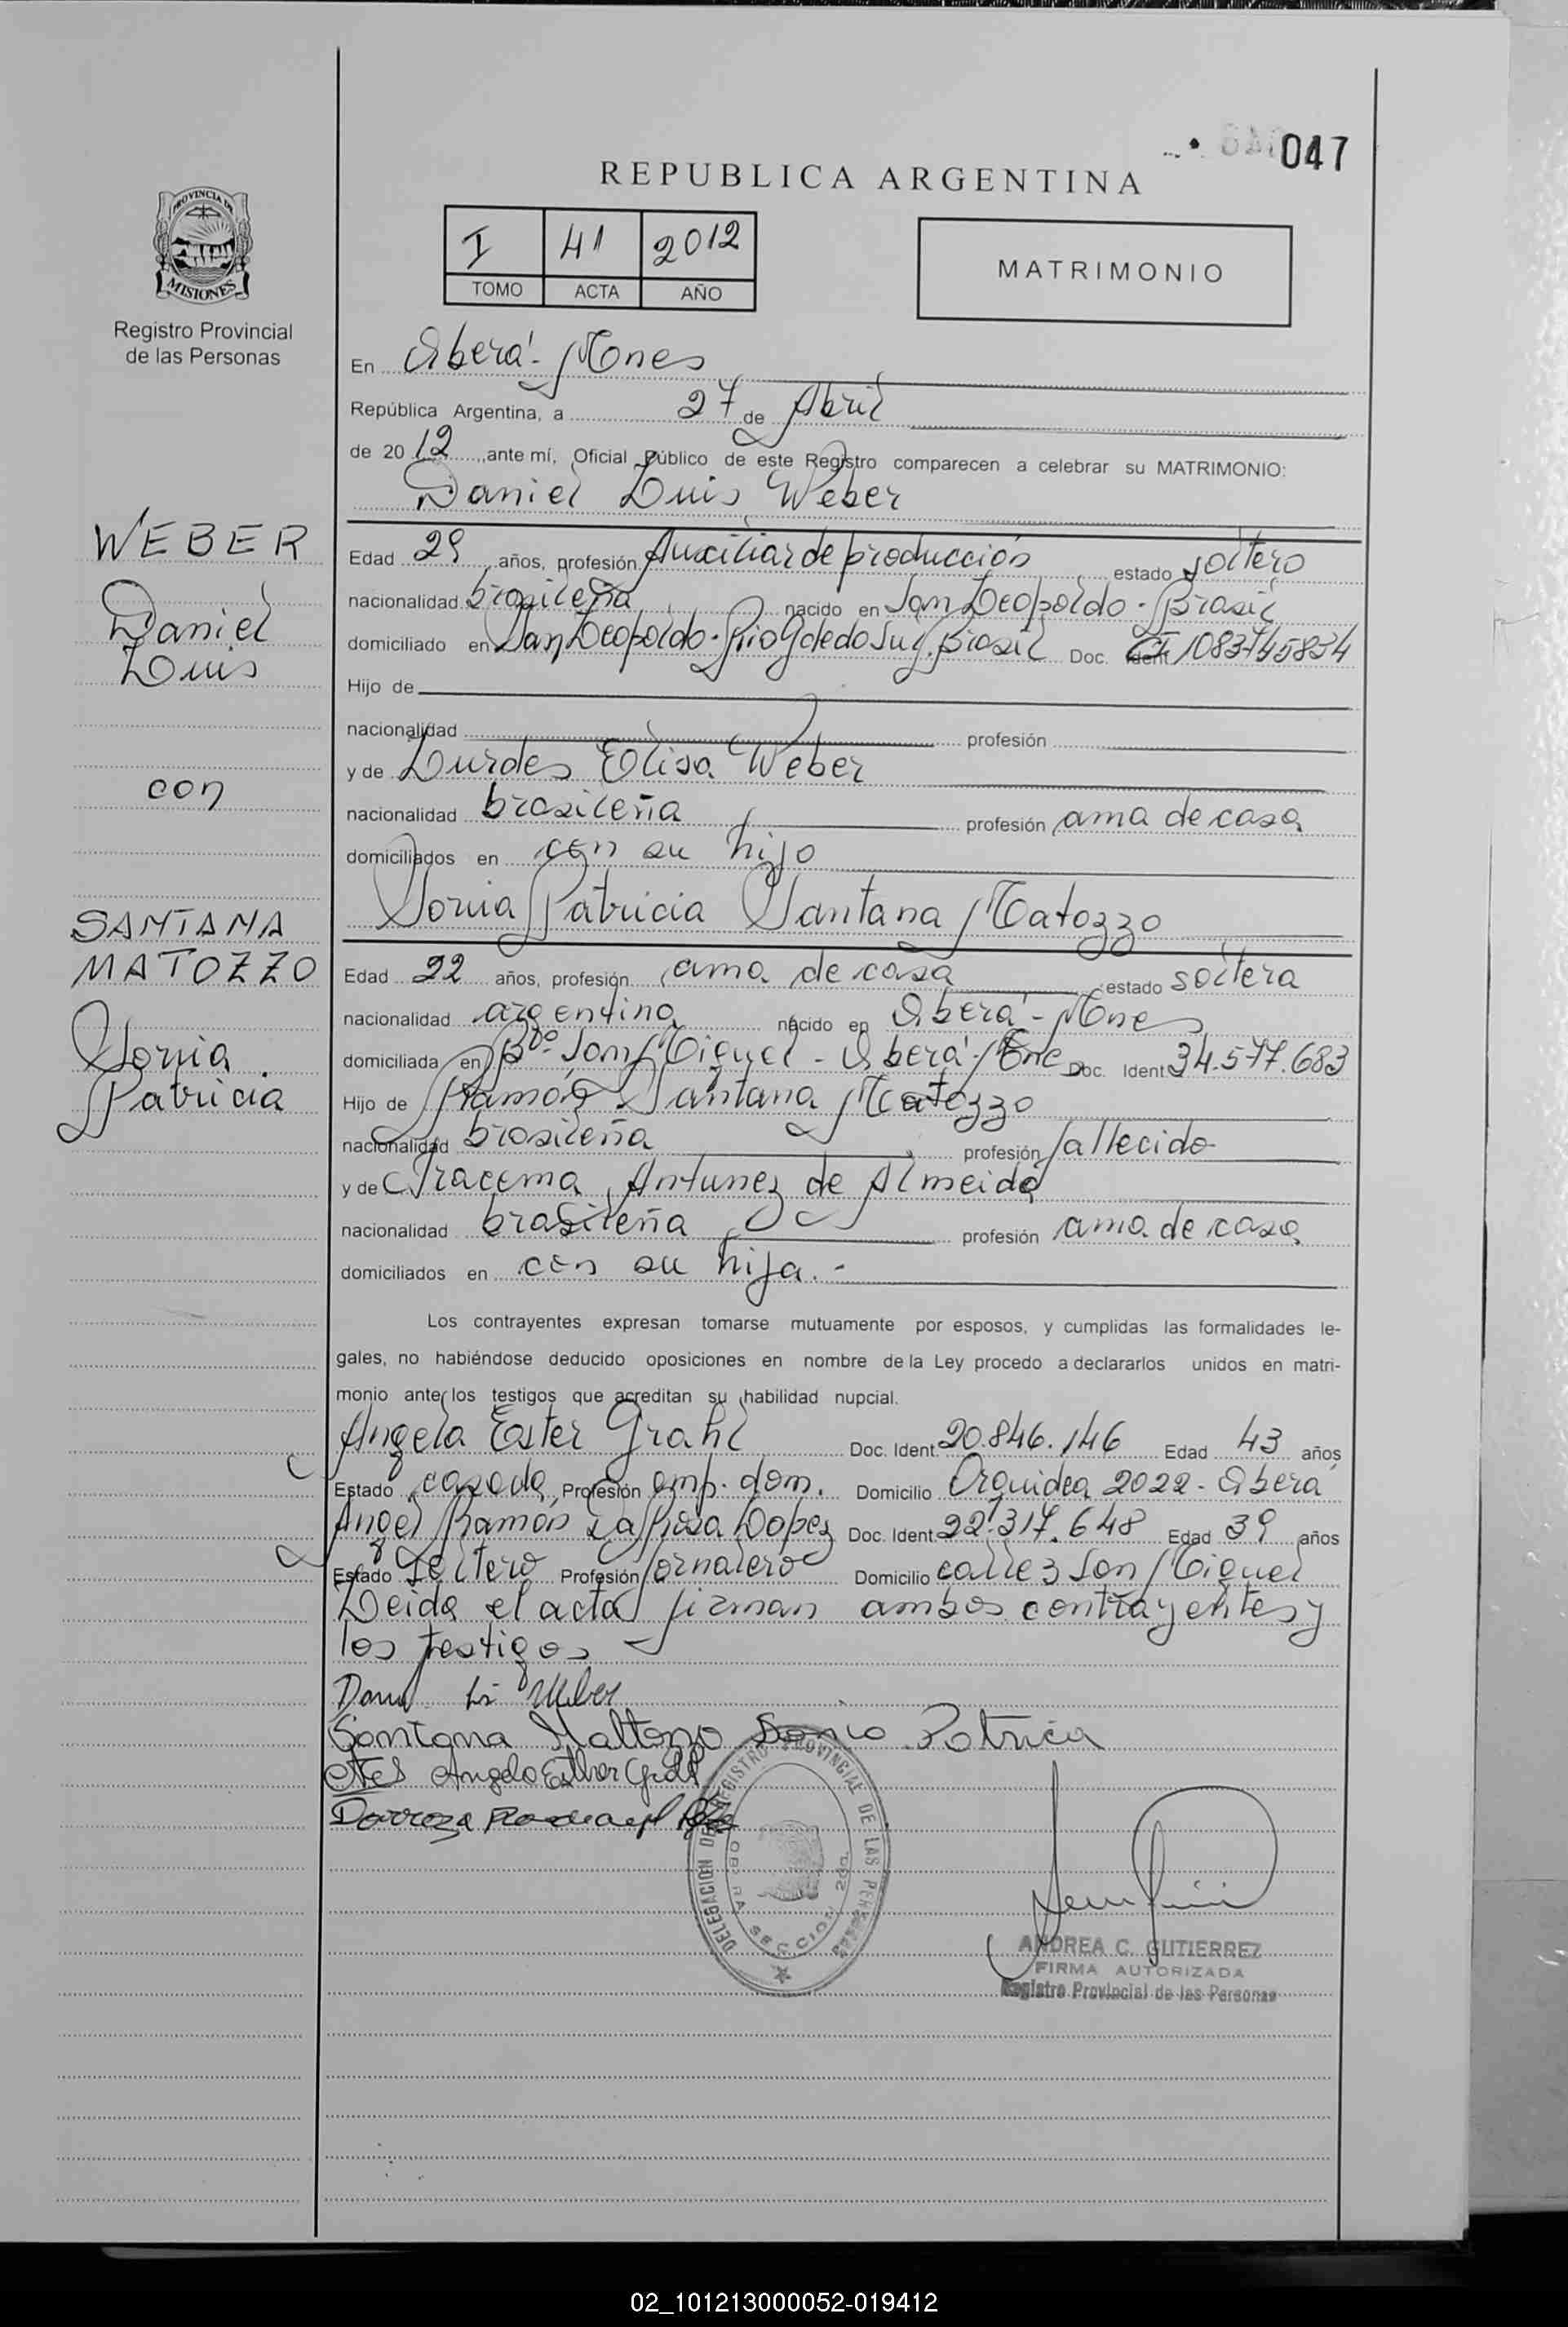 047
REPUBLICA ARGENTINA
PROVINCIA DE
MISIONES
Registro Provincial
de las Personas
I 41 2012
TOMO ACTA AÑO
MATRIMONIO
En Oberá - Mnes
República Argentina, a 27 de Abril
de 2012, ante mí, Oficial Público de este Registro comparecen a celebrar su MATRIMONIO:
Daniel Luis Weber
WEBER
Daniel
Luis
con
SANTANA
MATOZZO
Sonia
Patricia
Edad 29 años, profesión Auxiliar de producción estado soltero
nacionalidad brasileña nacido en San Leopoldo - Brasil
domiciliado en San Leopoldo - Rio Gdedo Sul. Brasil Doc.
Hijo de
nacionalidad profesión
y de Lurdes Elisa Weber
nacionalidad brasileña profesión ama de casa
domiciliados en con su hijo
Sonia Patricia Santana Matozzo
Edad 22 años, profesión ama de casa estado soltera
nacionalidad argentina nacido en Oberá - Mnes
domiciliada en Bº San Miguel - Oberá - Mnes Doc. Ident 34.577.683
Hijo de Ramón Santana Matozzo
nacionalidad brasileña profesión fallecido
y de Iracema Antunez de Almeida
nacionalidad brasileña profesión ama de casa
domiciliados en con su hija.-
Los contrayentes expresan tomarse mutuamente por esposos, y cumplidas las formalidades le-
gales, no habiéndose deducido oposiciones en nombre de la Ley procedo a declararlos unidos en matri-
monio ante los testigos que acreditan su habilidad nupcial.
Angela Ester Grahl Doc. Ident. 20.846.146 Edad 43 años
Estado casada Profesión emp. dom. Domicilio Orquidea 2022 - Oberá
Angel Ramón Lopez Doc. Ident. 22.317.648 Edad 39 años
Estado soltero Profesión Jornalero Domicilio calle 3 San Miguel
Leida el acta firman ambos contrayentes y
los testigos
Weber
Santana Mattozo Sonia Patrica
Angela Esther Grahl
DELEGACION DEL REGISTRO PROVINCIAL DE LAS PERSONAS
OBERA SECCION 2da.
ANDREA C. GUTIERREZ
FIRMA AUTORIZADA
Registro Provincial de las Personas
02_101213000052-019412